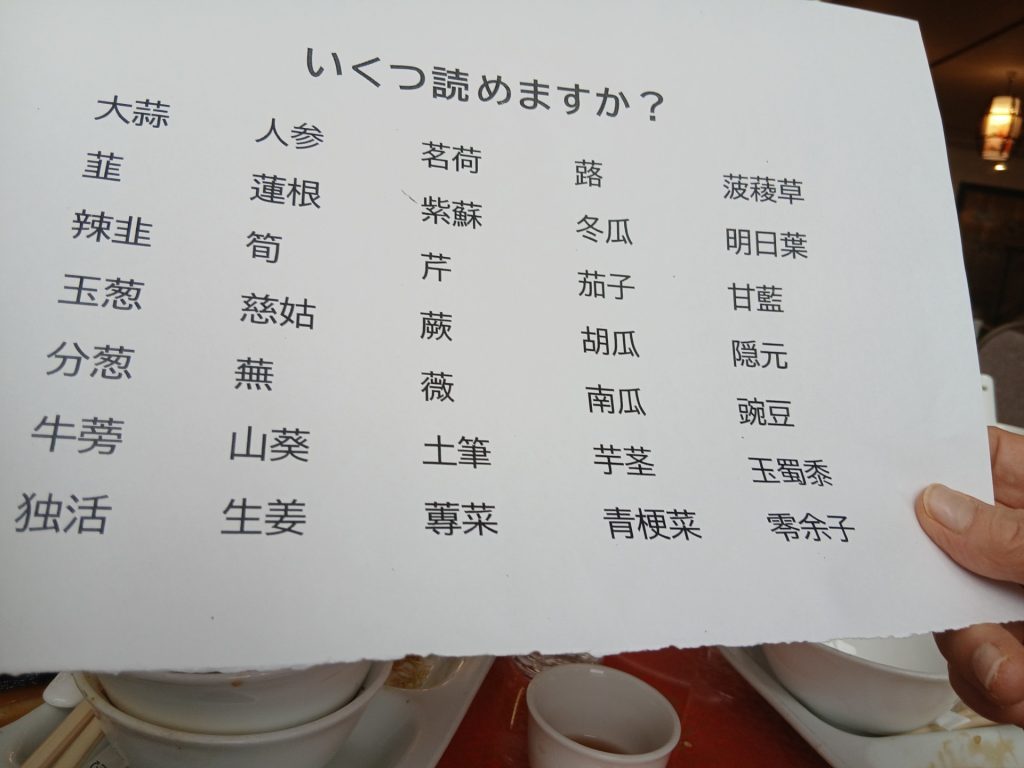 いくつ読めますか？
大蒜 人参 茗荷 蕗 菠薐草
韮 蓮根 紫蘇 冬瓜 明日葉
辣韭 筍 芹 茄子 甘藍
玉葱 慈姑 蕨 胡瓜 隠元
分葱 蕪 薇 南瓜 豌豆
牛蒡 山葵 土筆 芋茎 玉蜀黍
独活 生姜 蓴菜 青梗菜 零余子